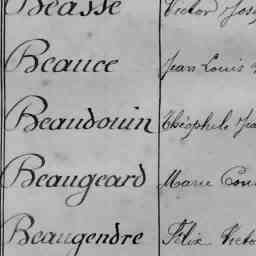 Beasse Victor
Beauce Jean Louis
Beaudouin Théophile
Beaugeard Marie
Beaugendre Félix Victo